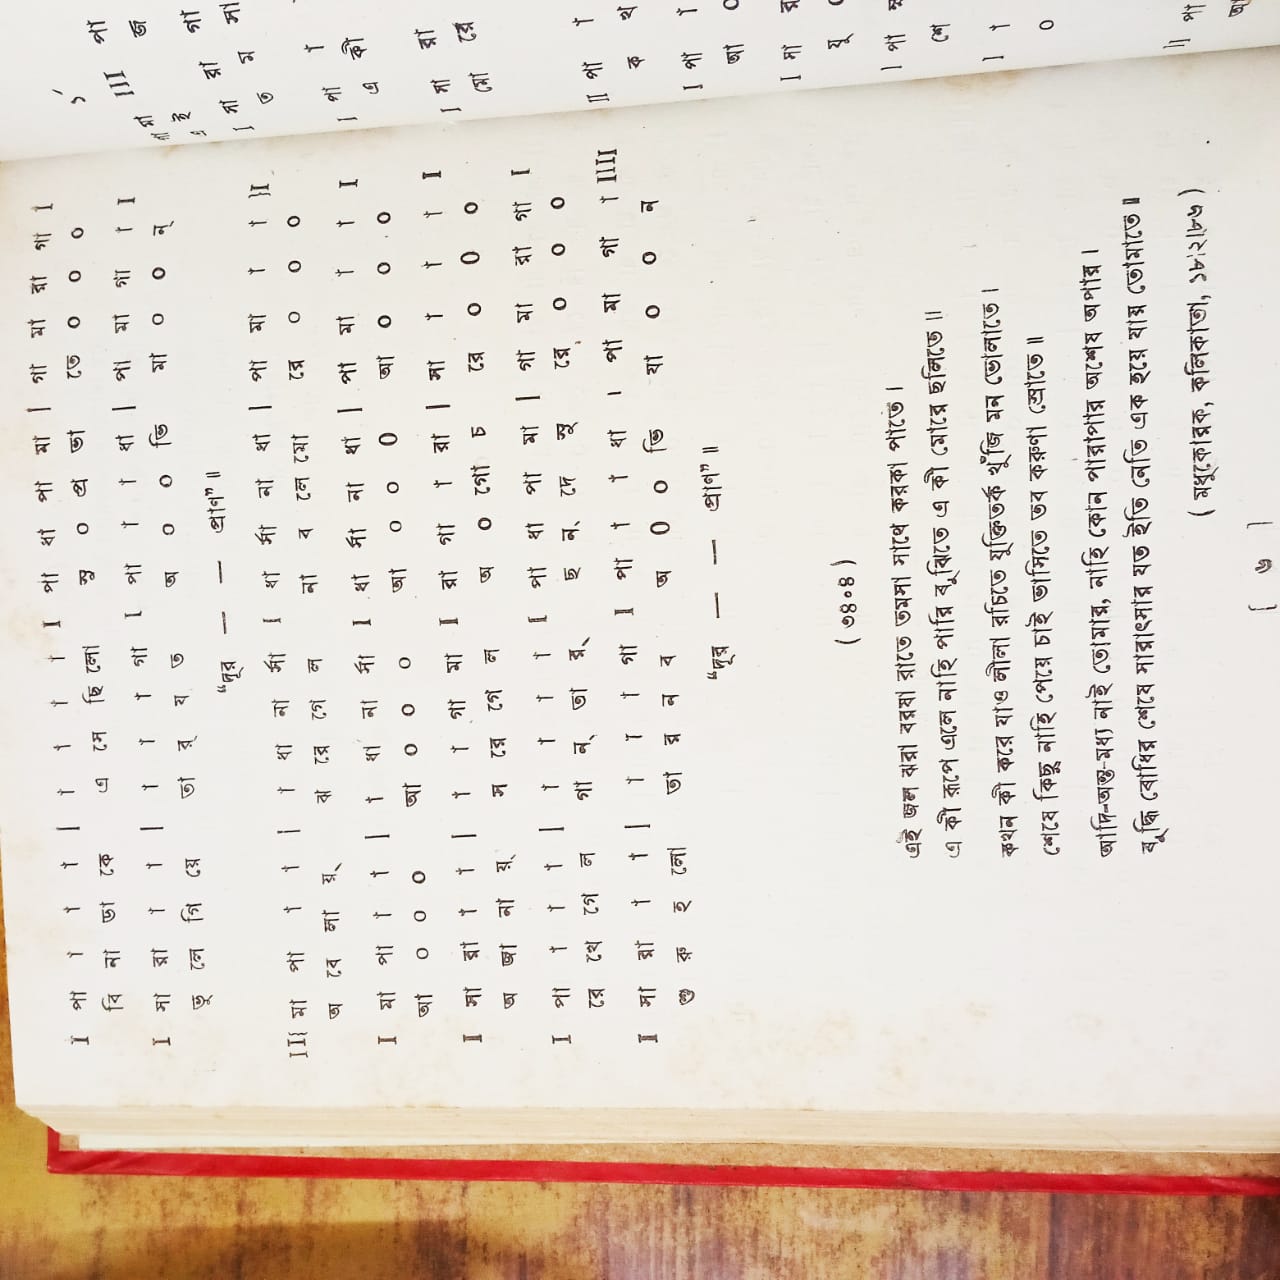 I পা া া া | া া া া I পা ধা পা মা | গা মা রা গা I
বি না ডা কে এ সে ছি লো সু ০ প্র ভা তে ০ ০ ০
I সা রা া া | া া া গা I পা া া ধা | পা মা গা া I
ভু লে গি য়ে তা র্ য ত অ ০ ০ ভি মা ০ ০ ন্
“দূর — — প্রাণ” ॥
II{ মা পা া া | া ধা না র্সা I ধা র্সা না ধা | পা মা া া }I
অ বে লা য়্ ঝ রে গে ল না ব লে মো রে ০ ০ ০
I মা পা া া | া ধা না র্সা I ধা র্সা না ধা | পা মা া া I
আ ০ ০ ০ আ ০ ০ ০ আ ০ ০ ০ আ ০ ০ ০
I সা রা া া | া া গা মা I রা গা া রা | সা া া া I
অ জা না য়্ স রে গে ল অ ০ গো চ রে ০ ০ ০
I পা া া া | া া া া I পা ধা পা মা | গা মা রা গা I
রে খে গে ল গা ন্ তা র্ ছ ন্ দে সু রে ০ ০ ০
I সা রা া া | া া া গা I পা া া ধা | পা মা গা া IIII
শু রু হ লো তা র ন ব অ ০ ০ ভি যা ০ ০ ন
“দূর — — প্রাণ” ॥
( ৩৪০৪ )
এই জল ঝরা বরষা রাতে তমসা সাথে করকা পাতে ।
এ কী রূপে এলে নাহি পারি বুঝিতে এ কী মোরে ছলিতে ॥
কখন কী করে যাও লীলা রচিতে যুক্তিতর্ক খুঁজি মন ভোলাতে ।
শেষে কিছু নাহি পেয়ে চাই ভাসিতে তব করুণা স্রোতে ॥
আদি-অন্ত-মধ্য নাই তোমার, নাহি কোন পারাপার অশেষ অপার ।
বুদ্ধি বোধির শেষে সারাৎসার যত ইতি নেতি এক হয়ে যায় তোমাতে ॥
( মধুকোরক, কলিকাতা, ১৮।২।৮৬ )
[ ৬ ]